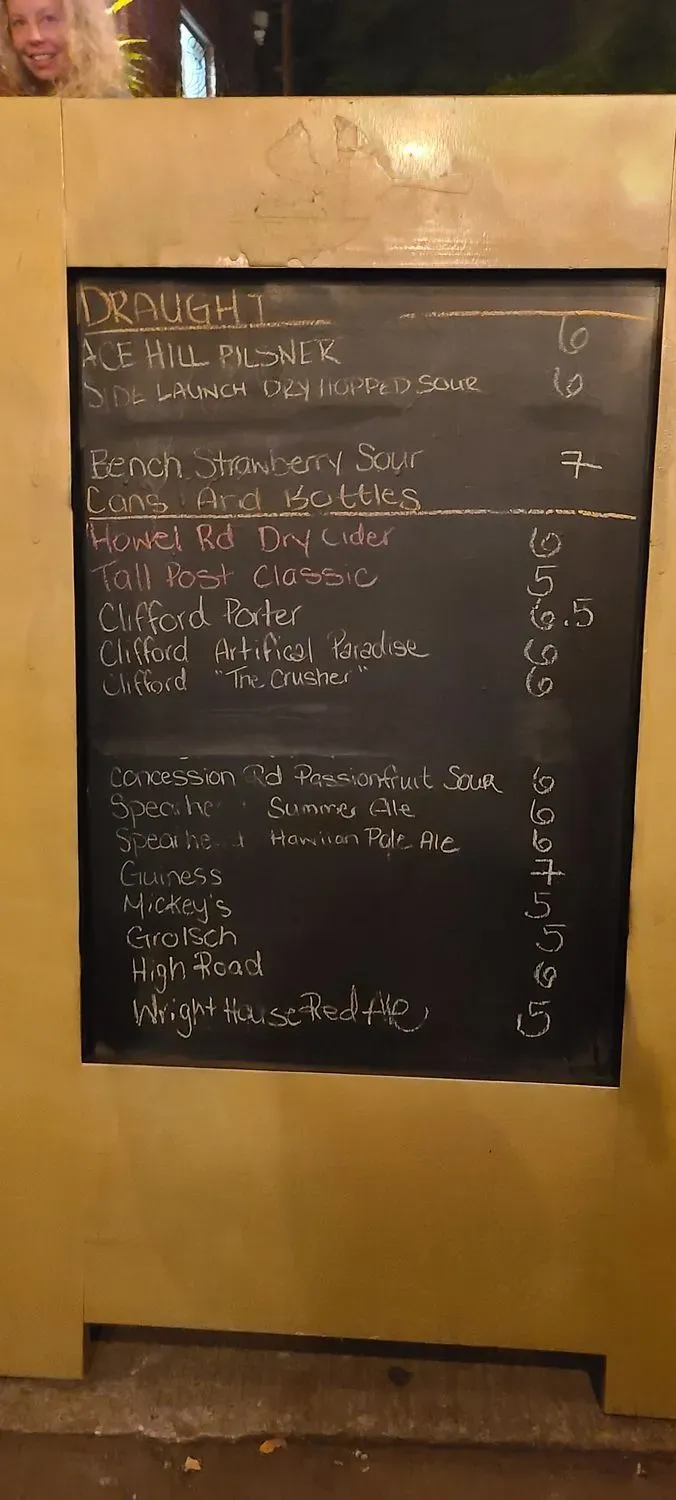 DRAUGHT
ACE HILL PILSNER 6
SIDE LAUNCH DRY HOPPED SOUR 6
Bench Strawberry Sour 7
Cans And Bottles
Howel Rd Dry Cider 6
Tall Post Classic 5
Clifford Porter 6.5
Clifford Artifical Paradise 6
Clifford "The Crusher" 6
Concession Rd Passionfruit Sour 6
Summer Ale 6
Pale Ale 6
Guiness 7
Mickey's 5
Grolsch 5
High Road 6
Wright House Red Ale 5